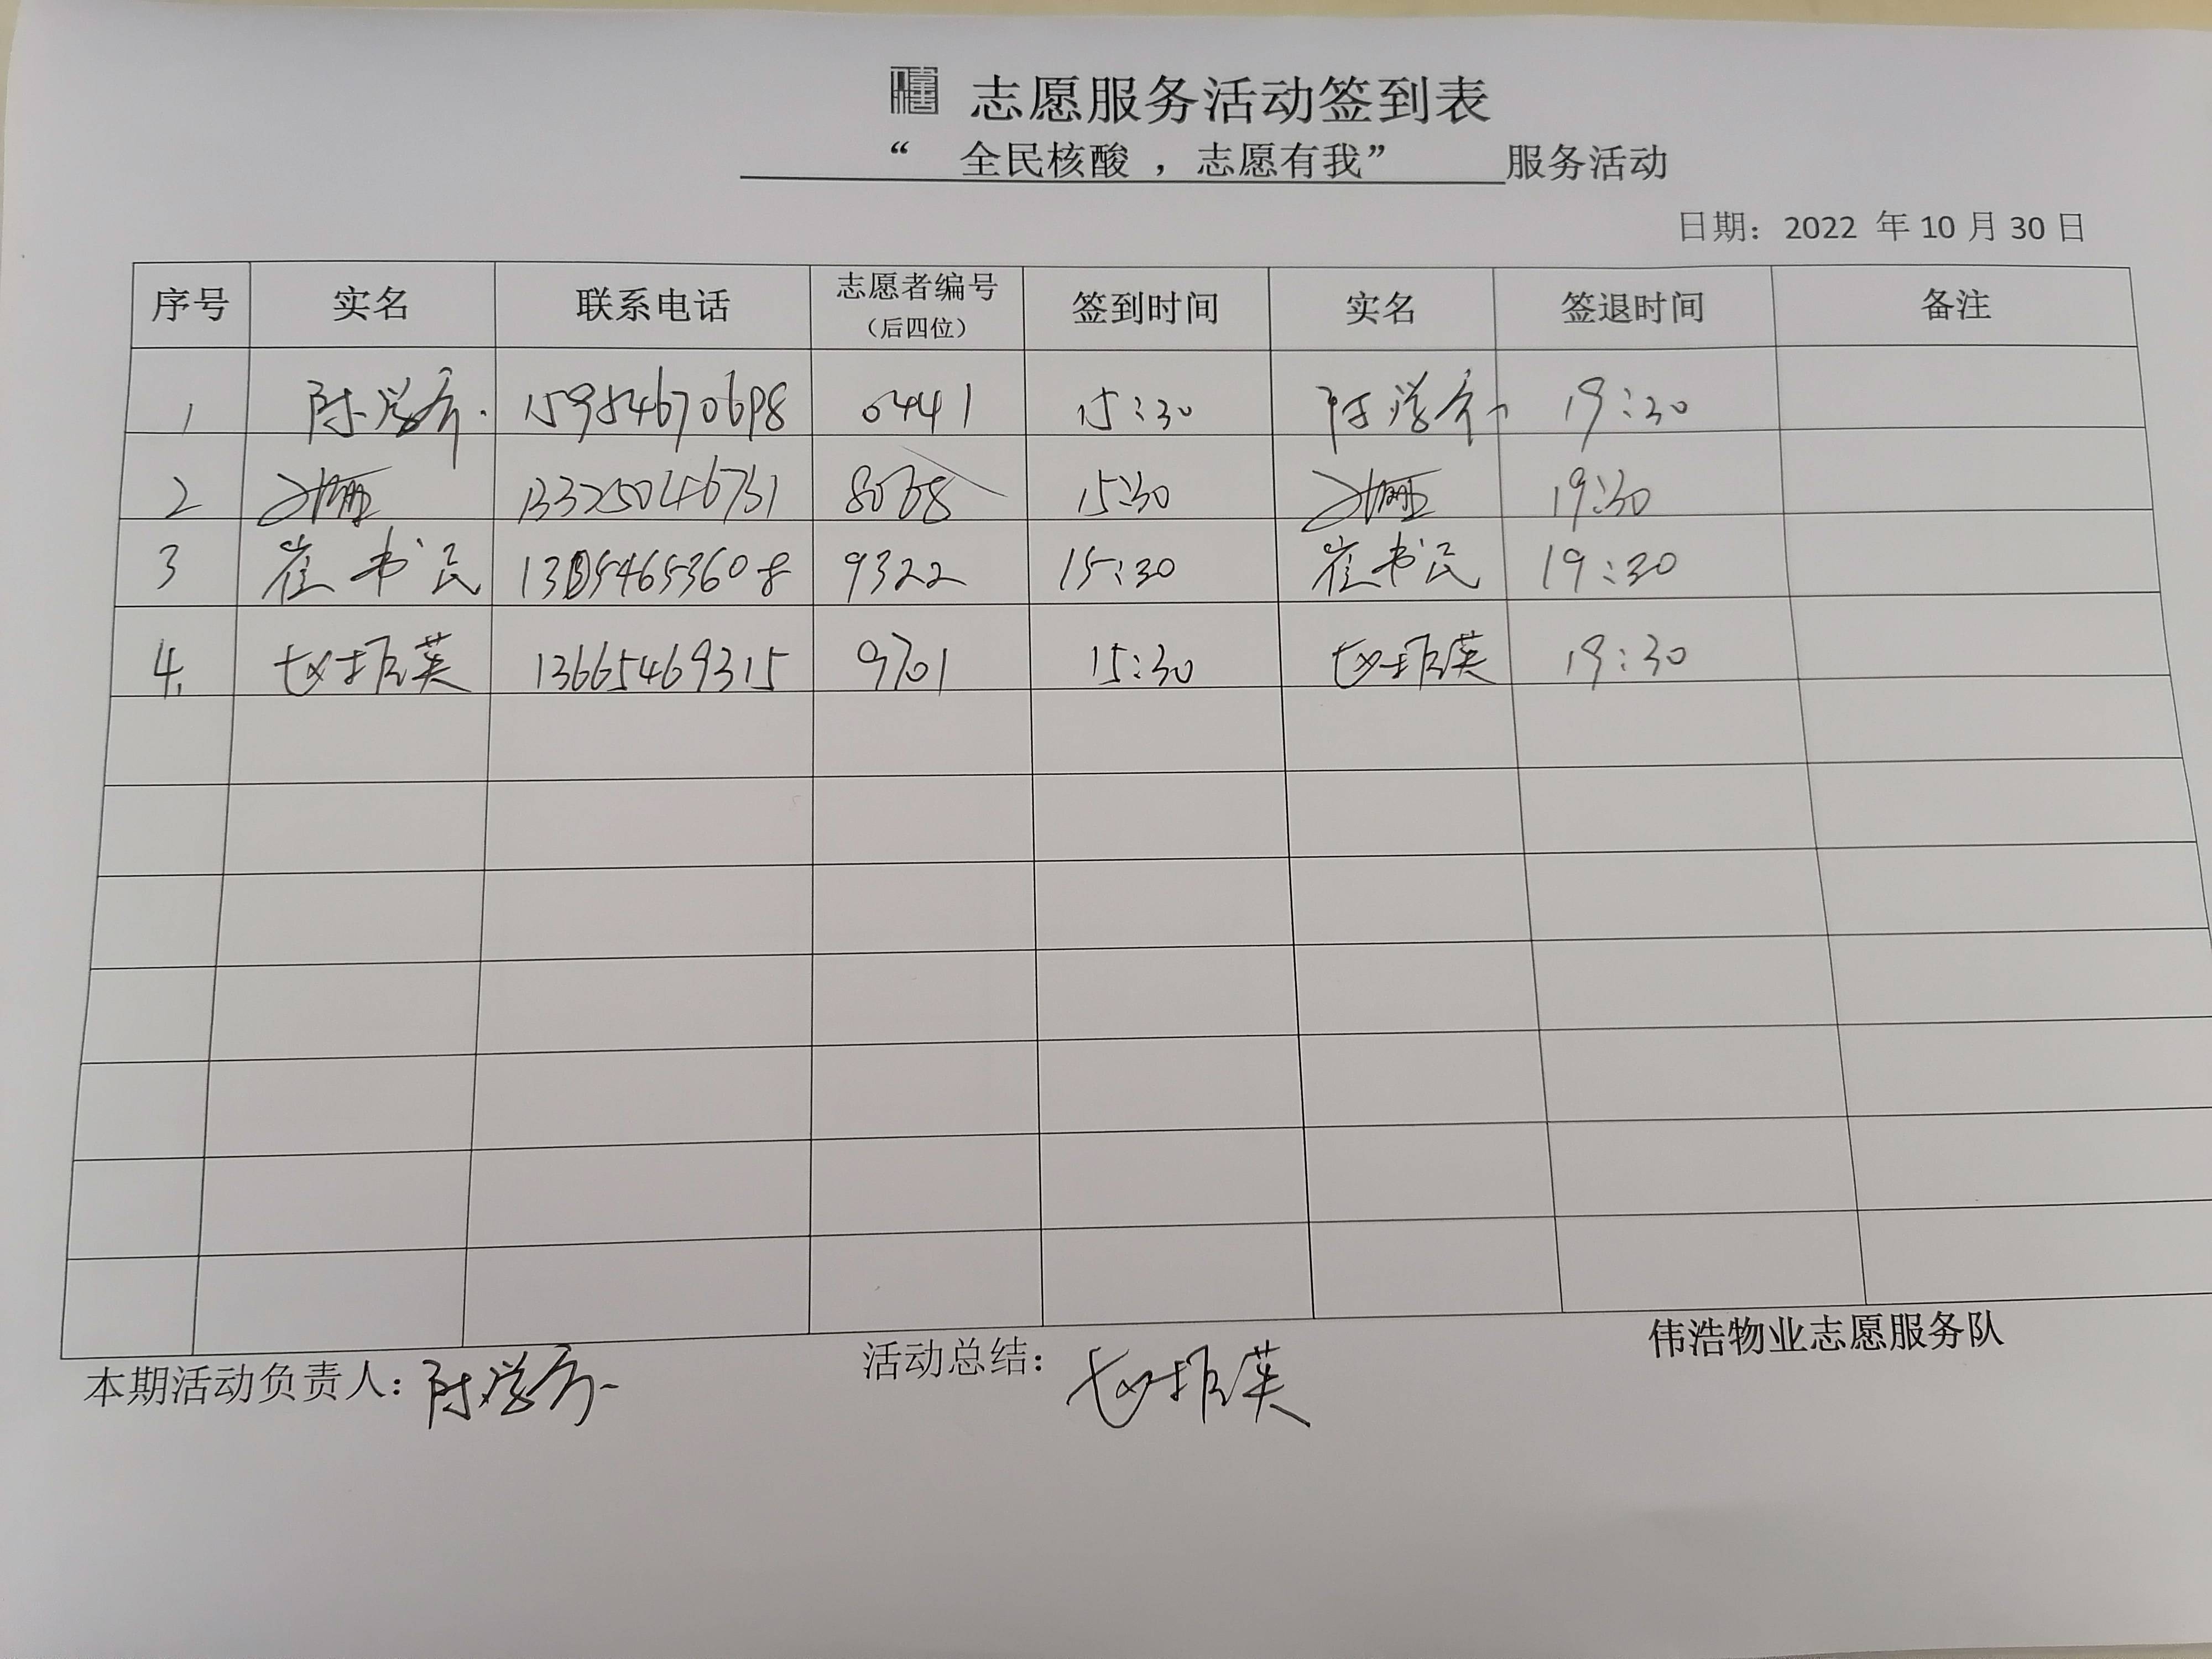 志愿服务活动签到表
“ 全民核酸 ，志愿有我” 服务活动
日期：2022 年 10 月 30 日
序号 实名 联系电话 志愿者编号（后四位） 签到时间 实名 签退时间 备注
1 陈学齐 15954670698 0441 15:30 陈学齐 19:30
2 13325046731 8068 15:30 19:30
3 崔书民 9322 15:30 崔书民 19:30
4. 赵振英 13665469315 9701 15:30 赵振英 19:30
本期活动负责人：陈学齐 活动总结：赵振英 伟浩物业志愿服务队